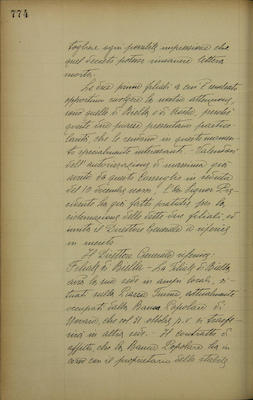 774
togliere ogni possibile impressione che
quel decreto potesse rimanere lettera
morta.
Le due prime filiali a cui è
opportuno rivolgere la nostra attenzione,
sono quelle di Biella e di perchè
queste due piazze presentano partico-
larità, che le rendono in questo momen-
to specialmente interessanti. Valendosi
dell'autorizzazione di massima già
avuta da questo Consiglio in seduta
del 10 dicembre il Signor Pre-
sidente ha già fatto pratiche per la
sistemazione delle dette due filiali, ed
invita il Direttore Generale a riferire
in merito
Il Direttore Generale riferisce:
Filiale di Biella - La Filiale di Biella
avrà la sua sede in ampi locali, si-
tuati sulla Piazza attualmente
occupati dalla Banca Popolare di
Novara, che col 31 ottobre p.v. si trasfe-
rirà in altra sede. Il contratto di
affitto, che la Banca Popolare ha in
corso con il proprietario dello stabile